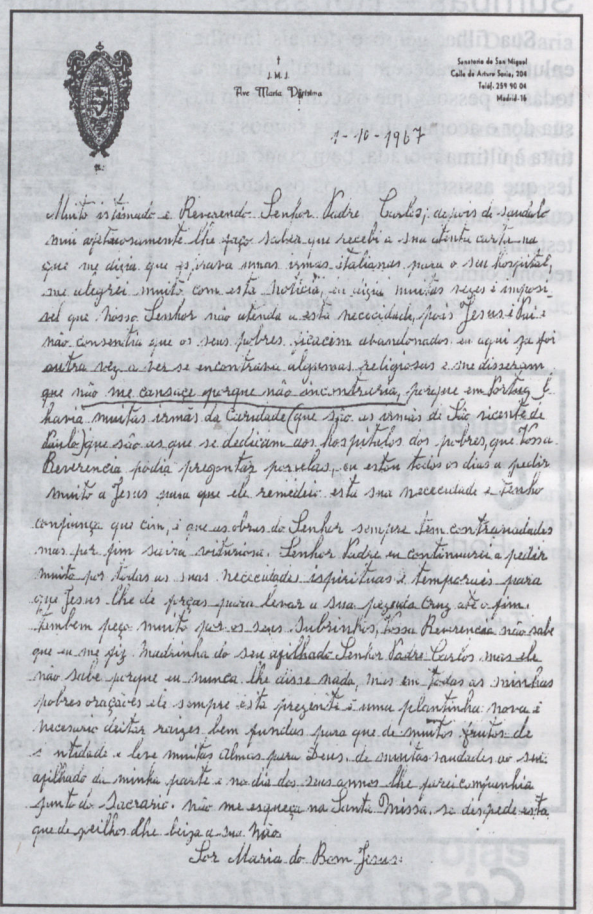 J. M. J.
Ave Maria Purísima
Sanatorio de San Miguel
Calle de Arturo Soria, 204
Teléf. 259 90 04
Madrid-16
1-10-1967
Muito estimado e Reverendo Senhor Padre Carlos; depois de saudalo
mui afetuosamente lhe faço saber que recebi a sua atenta carta na
que me dizia que espirava umas irmas italianas para o seu hospital,
me alegrei muito com esta noticia, eu dizia muitas vezes é imposi-
vel que Nosso Senhor não atenda a esta nececidade, pois Jesus é Pai e
não consentia que os seus pobres ficacem abandonados eu aqui ja foi
outra vez a ver se encontrava algumas religiosas e me disseram
que não me cansace porque não incontraria, porque em Portugal
havia muitas irmãs da Caridade (que são as irmãs de São vicente de
Paulo) que são as que se dedicam aos hospitales dos pobres, que Vossa
Reverencia podia pregontar por elas, eu estou todos os dias a pedir
muito a Jesus para que ele remedeie esta sua nececidade e tenho
confiança que cim, é que as obras do Senhor sempre tem contrariedades
mas por fim saira vituriosa. Senhor Padre eu continuarei a pedir
muito por todas as suas nececidades ispirituais e temporais para
que Jesus lhe de forças para levar a sua pezenta Cruz até o fim.
tambem peço muito por os seus Subrinhos, Vossa Reverencia não sabe
que eu me fiz Madrinha do seu afilhado Senhor Padre Carlos, mas ele
não sabe porque eu nunca lhe disse nada, mas em todas as minhas
pobres oraçãoes ele sempre esta prezente é uma plantinha nova é
necesario deitar raizes bem fundas para que de muitos frutos de
s ntidade e leve muitas almas para Deus. de muitas saudades ao seu
afilhado da minha parte e no dia dos seus annos lhe farei companhia
junto do Sacrario. não me esqueça na Santa Missa. se despede esta
que de joelhos lhe beija a sua Mão
Sor Maria do Bom Jesus.